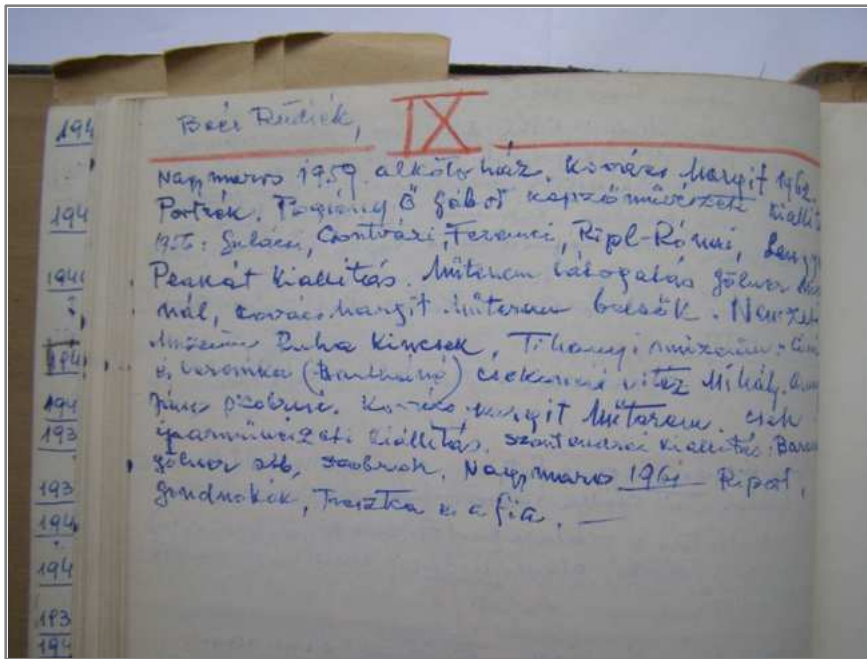 194
194
194
194
194
193
193
194
194
193
194
Boér Rudiék, IX
Nagymaros 1959. alkotóház. Kovács Margit 1962.
Portrék. Pogány Ö Gábor képzőművészeti kiállít
1956: Gulácsi, Csontvári, Ferenci, Ripl-Rónai,
Plakát kiállítás. Műterem látogatás gölner
nál, Kovács Margit műterem belsők. Nemzeti
Múzeum Ruha kincsek, Tihanyi múzeum.
és veronka (Bartháné) csekonai vitéz Mihály.
János szobrai. Kovács Margit Műterem. cseh
iparművészeti kiállítás. szentendrei kiállítás.
gölner stb, szobrok. Nagymaros 1961 Riport,
gondnokék, Treszka és a fia.